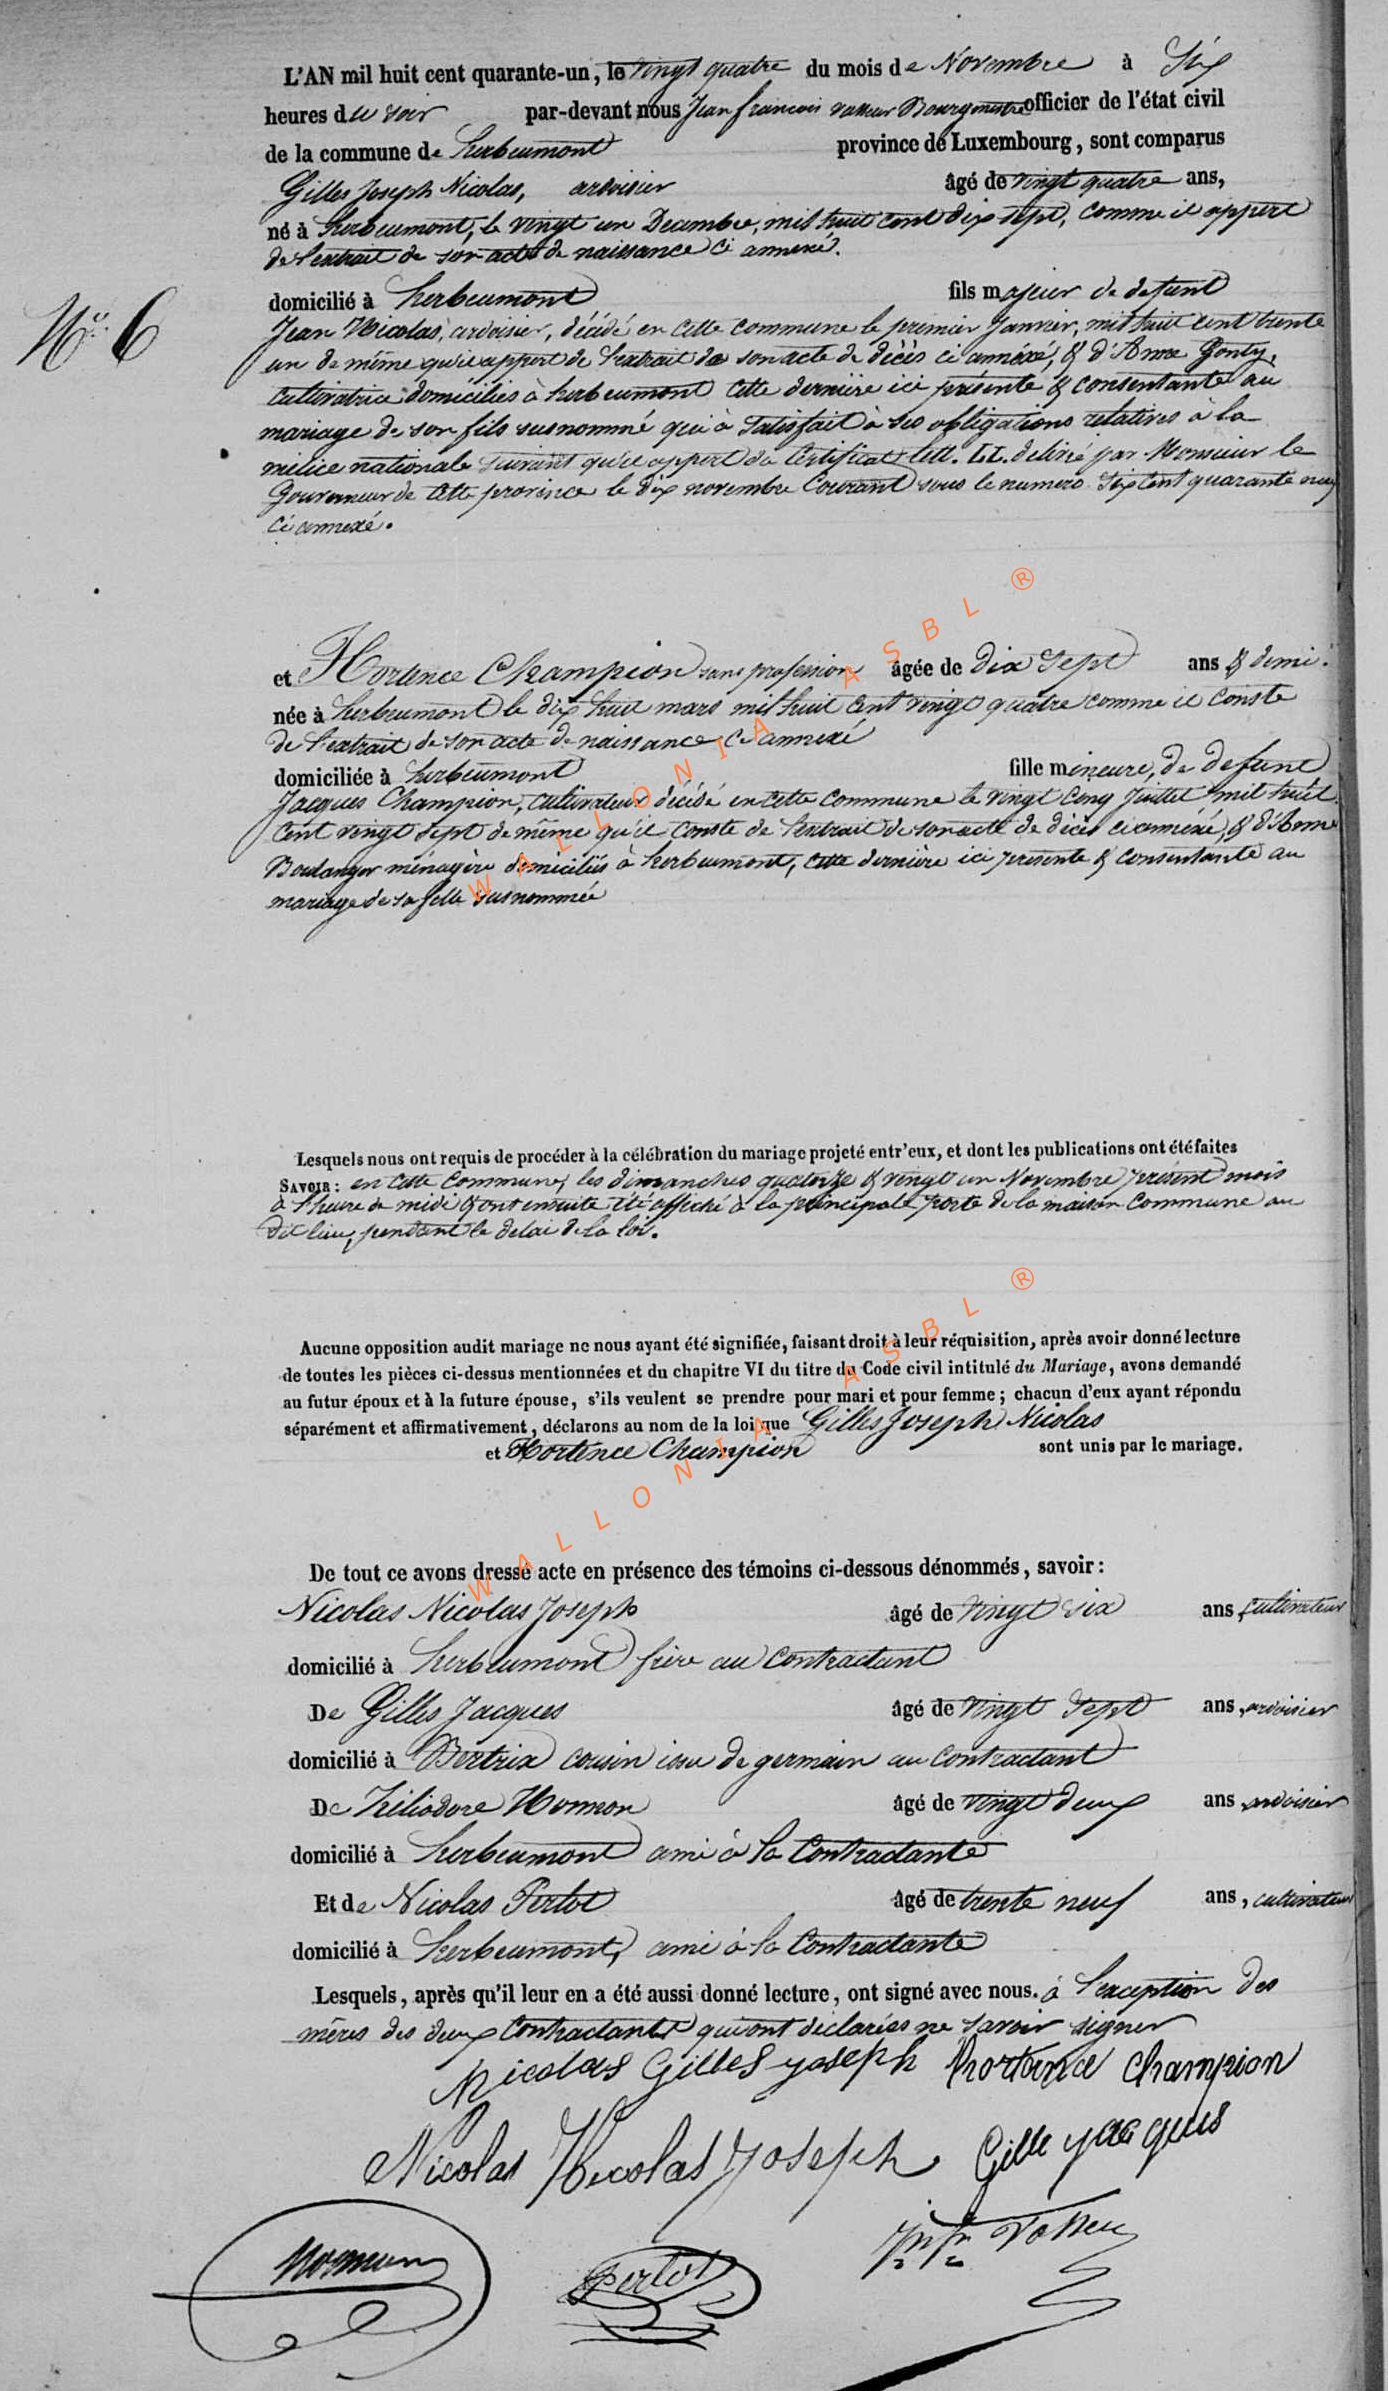 L'AN mil huit cent quarante-un, le vingt quatre du mois de Novembre à Six
heures du soir par-devant nous Jean francois vasseur Bourgmestre officier de l'état civil
de la commune de herbeumont province de Luxembourg, sont comparus
Gilles Joseph Nicolas, ardoisier âgé de vingt quatre ans,
né à herbeumont, le vingt un Decembre, mil huit cent dix sept, comme il appert
de l'extrait de son acte de naissance ci annexé.
domicilié à herbeumont fils majeur de defunt
N° 6
Jean Nicolas, ardoisier, décédé en cette commune le premier Janvier, mil huit cent trente
un de même qu'il appert de l'extrait de son acte de décès ci annéxé, & d'Anne Gonty,
cultivatrice domiciliés à herbeumont cette dernière ici présente & consentante au
mariage de son fils susnommé qui à satisfait à ses obligations relatives à la
milice nationale suivant qu'il appert du certificat lett. LL. delivré par Monsieur le
Gouverneur de cette province le dix novembre courant sous le numero six cent quarante neuf
ci annexé.
et Hortence Champion sans profession âgée de dix sept ans & demi.
née à herbeumont le dix huit mars mil huit cent vingt quatre comme il conste
de l'extrait de son acte de naissance ci annexé
domiciliée à herbeumont fille mineure, de defunt
Jacques Champion, cultivateur décédé en cette commune le vingt cinq Juillet mil huit
cent vingt sept de même qu'il conste de l'extrait de son acte de décès ci annéxé, & d'Anne
Boulanger ménagère domiciliés à herbeumont, cette dernière ici presente & consentante au
mariage de sa fille susnommée
Lesquels nous ont requis de procéder à la célébration du mariage projeté entr'eux, et dont les publications ont été faites
SAVOIR : en cette commune, les dimanches quatorze & vingt un Novembre présent mois
à l'heure de midi & ont ensuite été affiché à la principale porte de la maison commune au
dit lieu, pendant le delai de la loi.
Aucune opposition audit mariage ne nous ayant été signifiée, faisant droit à leur réquisition, après avoir donné lecture
de toutes les pièces ci-dessus mentionnées et du chapitre VI du titre du Code civil intitulé du Mariage, avons demandé
au futur époux et à la future épouse, s'ils veulent se prendre pour mari et pour femme ; chacun d'eux ayant répondu
séparément et affirmativement, déclarons au nom de la loi que Gilles Joseph Nicolas
et Hortence Champion sont unis par le mariage.
De tout ce avons dressé acte en présence des témoins ci-dessous dénommés, savoir :
Nicolas Nicolas Joseph âgé de vingt six ans, cultivateur
domicilié à herbeumont frère au contractant
De Gilles Jacques âgé de vingt sept ans, ardoisier
domicilié à Bertrix cousin issu de germain au contractant
De héliodore Monmon âgé de vingt deux ans ardoisier
domicilié à herbeumont ami à la contractante
Et de Nicolas Perlot âgé de trente neuf ans, cultivateur
domicilié à herbeumont, ami à la contractante
Lesquels, après qu'il leur en a été aussi donné lecture, ont signé avec nous. à l'exception des
mères des deux contractants qui ont déclarées ne savoir signer
Nicolas Gilles joseph hortence champion
Nicolas Nicolas Joseph Gille jacques
Perlot
WALLONIA ASBL ®
WALLONIA ASBL ®